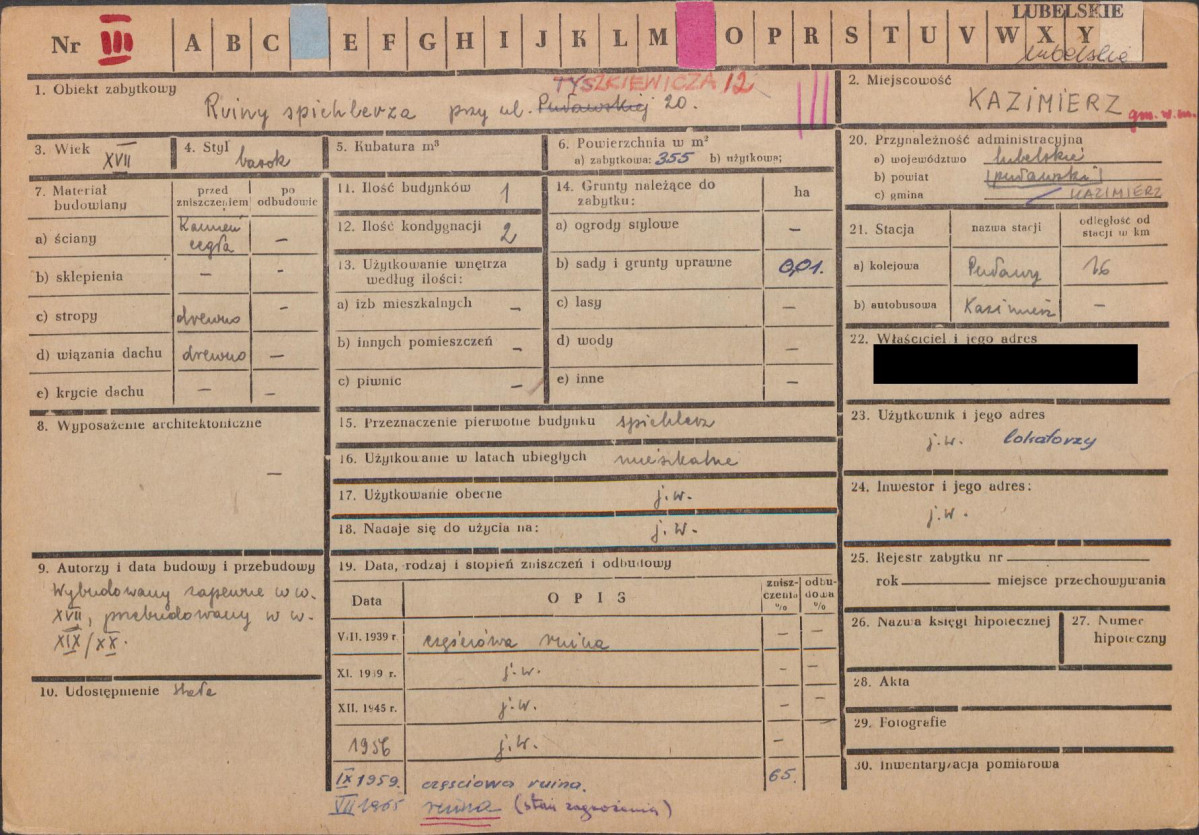 LUBELSKIE
Nr III A B C E F G H I J K L M O P R S T U V W X Y
lubelskie
TYSZKIEWICZA 12
1. Obiekt zabytkowy
Ruiny spichlerza przy ul. Puławskiej 20.
2. Miejscowość
KAZIMIERZ gm. w. m.
3. Wiek XVII
4. Styl barok
5. Kubatura m³
6. Powierzchnia w m²
a) zabytkowa: 355 b) użytkowa:
20. Przynależność administracyjna
a) województwo lubelskie
b) powiat (puławski)
c) gmina KAZIMIERZ
7. Materiał budowlany
przed zniszczeniem
po odbudowie
a) ściany Kamień cegła –
b) sklepienia – –
c) stropy drewno –
d) wiązania dachu drewno –
e) krycie dachu – –
11. Ilość budynków 1
12. Ilość kondygnacji 2
13. Użytkowanie wnętrza według ilości:
a) izb mieszkalnych –
b) innych pomieszczeń –
c) piwnic –
14. Grunty należące do zabytku: ha
a) ogrody stylowe –
b) sady i grunty uprawne 0,01.
c) lasy –
d) wody –
e) inne –
21. Stacja
nazwa stacji
odległość od stacji w km
a) kolejowa Puławy 16
b) autobusowa Kazimierz –
22. Właściciel i jego adres
8. Wyposażenie architektoniczne
–
15. Przeznaczenie pierwotne budynku spichlerz
16. Użytkowanie w latach ubiegłych mieszkalne
17. Użytkowanie obecne j.w.
18. Nadaje się do użycia na: j.w.
23. Użytkownik i jego adres
j.w. lokatorzy
24. Inwestor i jego adres:
j.w.
9. Autorzy i data budowy i przebudowy
Wybudowany zapewne w w.
XVII, przebudowany w w.
XIX/XX.
10. Udostępnienie stałe
19. Data, rodzaj i stopień zniszczeń i odbudowy
Data OPIS zniszczenia % odbudowa %
VIII. 1939 r. częściowa ruina – –
XI. 1939 r. j.w. – –
XII. 1945 r. j.w. – –
1956 j.w. –
IX 1959. częściowa ruina. 65.
VII 1965 ruina (stan zagrożenia)
25. Rejestr zabytku nr
rok miejsce przechowywania
26. Nazwa księgi hipotecznej
27. Numer hipoteczny
28. Akta
29. Fotografie
30. Inwentaryzacja pomiarowa